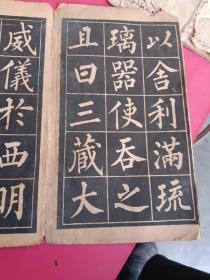 以舍利滿琉
璃器使吞之
且曰三藏大
威儀於西明